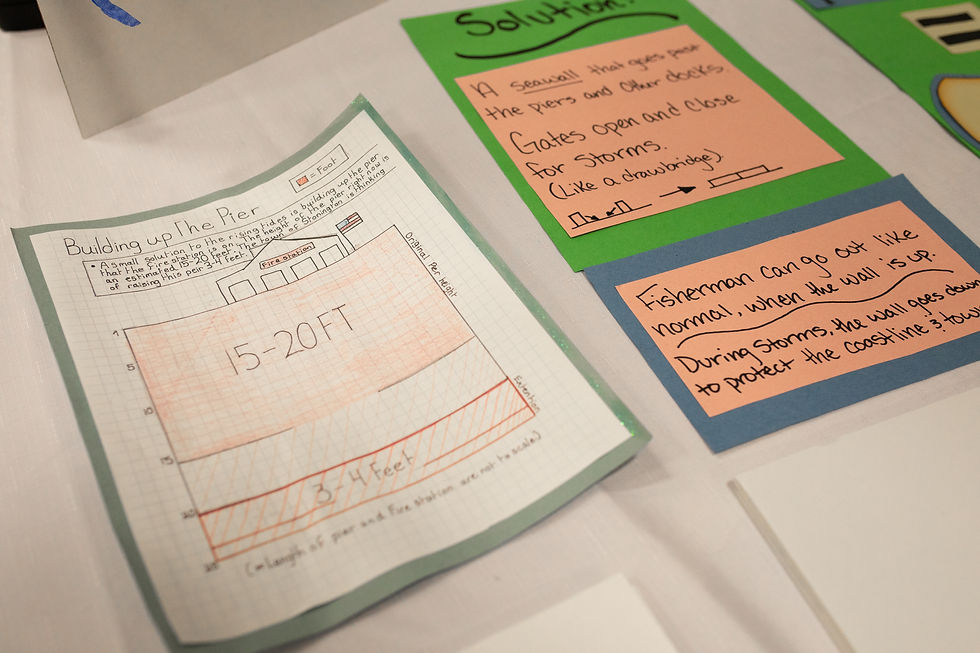 Building up The Pier
= Foot
• A small solution to the rising tides is building up the pier
that the fire station is on. The height of the pier right now is
an estimated 15-20 feet. The town of Stonington is thinking
of raising this peir 3-4 feet.
Fire station
Original Pier height
15-20 FT
5
10
15
20
25
Extention
3-4 Feet
(Length of pier and Fire station are not to scale)
Solution:
A seawall that goes past
the piers and other docks.
Gates open and close
for storms.
(Like a drawbridge).
Fisherman can go out like
normal, when the wall is up.
During storms, the wall goes down
to protect the coastline & town